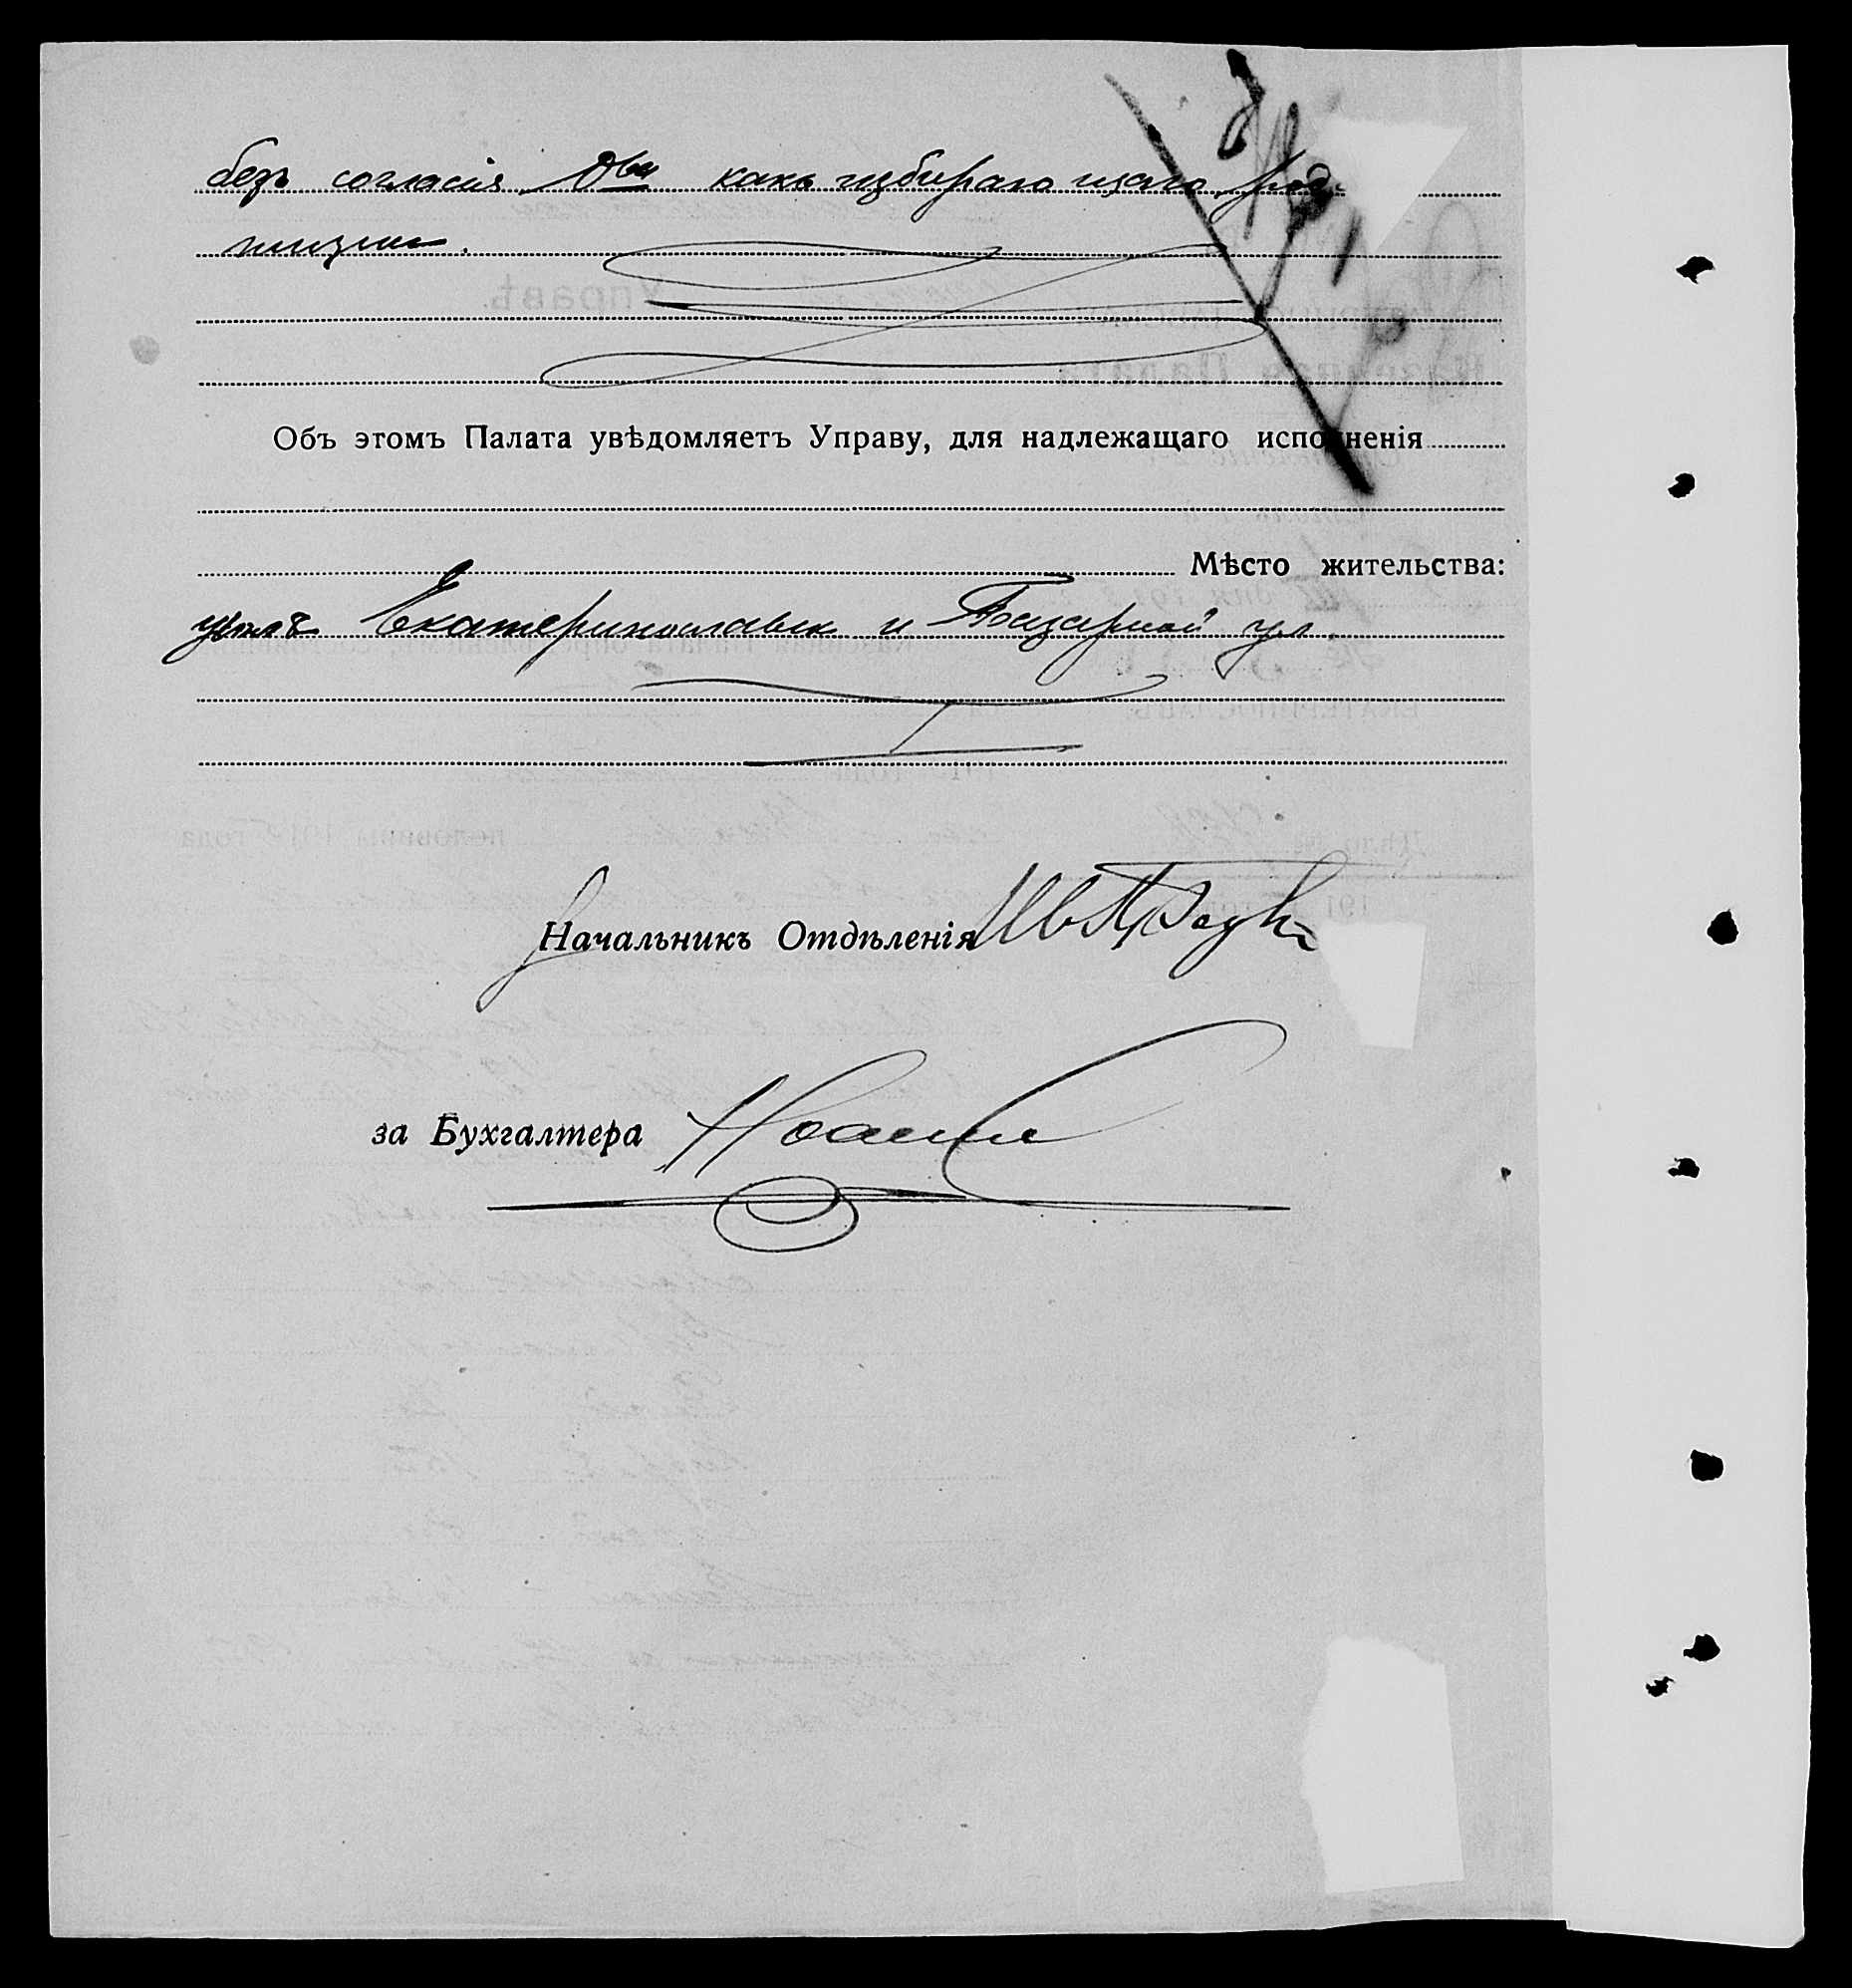 безъ согласія Ова какъ избирающаго родъ
жизни.
Объ этомъ Палата увѣдомляетъ Управу, для надлежащаго исполненія
Мѣсто жительства:
уголъ Екатеринославск и Базарной ул.
Начальникъ Отдѣленія
за Бухгалтера